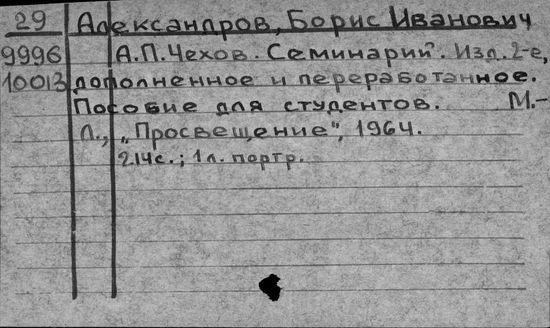 29 Александров, Борис Иванович
9996 А.П.Чехов. Семинарий. Изд. 2-е,
10013 дополненное и переработанное.
Пособие для студентов. М.-
Л., „Просвещение", 1964.
214с.; 1л. портр.